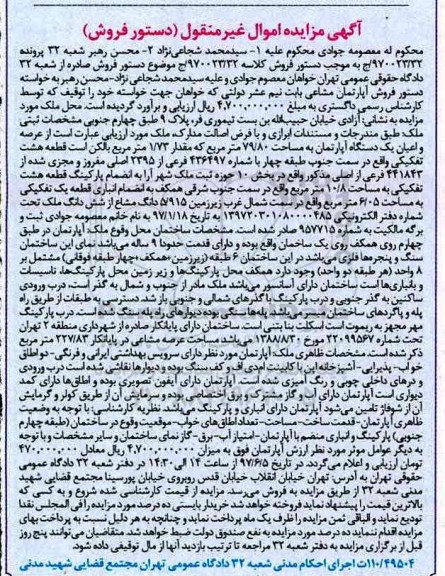 آگهی مزایده اموال غیرمنقول (دستور فروش)
محکوم له معصومه جوادی محکوم علیه ۱- سیدمحمد شجاعی‌نژاد ۲- محسن رهبر شعبه ۳۲ پرونده
۹۷۰۰۲۳/۳۲/ج به موجب دستور فروش کلاسه ۹۷۰۰۲۳/۳۲/ج موضوع دستور فروش صادره از شعبه ۳۲
دادگاه حقوقی عمومی تهران خواهان معصوم جوادی و علیه سیدمحمد شجاعی‌نژاد-محسن رهبر به خواسته
دستور فروش آپارتمان مشاعی بابت نیم عشر دولتی که خواهان جهت خواسته خود را توقیف که توسط
کارشناس رسمی دادگستری به مبلغ ۴,۷۰۰,۰۰۰,۰۰۰ ریال ارزیابی و برآورد گردیده است. محل ملک مورد
مزایده به نشانی: آزادی خیابان حبیب‌الله بن بست تیموری فر، پلاک ۹ طبق چهارم جنوبی مشخصات ثبتی
ملک: طبق مندرجات و مستندات ابرازی و با فرض اصالت مدارک، ملک مورد ارزیابی عبارت است از عرصه
و اعیان یک دستگاه آپارتمان به مساحت ۷۹/۸۰ متر مربع که مقدار ۱/۷۳ متر مربع بالکن است قطعه هشت
تفکیکی واقع در سمت جنوب طبقه چهار با شماره ۴۳۶۴۹۷ فرعی از ۲۳۹۵ اصلی مفروز و مجزی شده از
۴۴۱۸۴۳ فرعی از اصلی مذکور واقع در بخش ۱۰ حوزه ثبت ملک شهر آرا به انضمام پارکینگ قطعه هشت
تفکیکی به مساحت ۱۰/۸ متر مربع واقع در سمت جنوب شرقی همکف به انضمام انباری قطعه یک تفکیکی
به مساحت ۶/۰۵ متر مربع واقع در سمت شمال غرب زیرزمین ۵/۹۱۵ دانگ مشاع از شش دانگ ملک تحت
شماره دفتر الکترونیکی ۱۳۹۷۲۰۳۰۱۰۸۰۰۰۴۸۵ به تاریخ ۹۷/۱/۱۸ به نام خانم معصومه جوادی ثبت و
برگه مالکیت به شماره ۹۵۷۷۱۵ صادر شده است. مشخصات ساختمان محل وقوع ملک: آپارتمان در طبق
چهارم روی همکف از یک ساختمان واقع بوده و دارای قدمت حدودا ۹ ساله می‌باشد نمای این ساختمان
سنگ و پنجره‌ها فلزی می‌باشد در این ساختمان ۶ طبقه (زیرزمین-همکف-چهار طبقه فوقانی) مشتمل بر
۸ واحد (هر طبقه دو واحد) وجود دارد همکف محل پارکینگ‌ها و زیر زمین محل پارکینگ‌ها، تاسیسات
و انباری‌ها است ساختمان دارای آسانسور می‌باشد ملک مادر از جنوب و شمال به گذر است، درب ورودی
ساکنین به گذر جنوبی و درب پارکینگ با گذرهای شمالی و جنوبی باز شد. دسترسی به طبقات از طریق راه
پله و پاگردهای ساختمان میسر می‌باشد پله‌ها سنگی بوده دیوارهای راه پله سنگ شده است. درب پارکینگ
مهر مجهز به ریموت است اسکلت بنا بتنی است. ساختمان دارای پایانکار صادره از شهرداری منطقه ۲ تهران
تحت شماره ۲۲۰۹۹۵۶۷ مورخ ۱۳۸۸/۸/۳۰ می‌باشد مساحت عرصه مشاعی در پایانکار ۲۲۷/۸۳ متر مربع
ذکر شده است. مشخصات ظاهری ملک: آپارتمان مورد نظر دارای سرویس بهداشتی ایرانی و فرنگی-دو اطاق
خواب-پذیرایی-آشپزخانه اپن با کابینت ام دی اف و کف سنگ بوده و دیوارها نقاشی شده است درب ورودی
و درهای داخلی چوبی و رنگ آمیزی شده است. آپارتمان دارای آیفون تصویری بوده و اطاق‌ها دارای کمد
دیواری است آپارتمان دارای آب و گاز مشترک و برق اختصاصی بوده و سرمایش آن از طریق کولر و گرمایش
آن از شوفاژ تامین می‌شود آپارتمان دارای انباری و پارکینگ می‌باشد. نظریه کارشناسی: با توجه به وضعیت
ظاهری آپارتمان-قدمت ساخت-مساحت-تعداد اطاق‌های خواب-موقعیت وقوع در ساختمان (طبقه چهارم
جنوبی) پارکینگ و انباری منضم با آپارتمان-امتیاز آب-برق-گاز نمای ساختمان و سایر مشخصات و با توجه
به دیگر عوامل موثر مورد نظر ارزش آپارتمان فوق به میزان ۴,۷۰۰,۰۰۰,۰۰۰ ریال معادل ۴۷۰,۰۰۰,۰۰۰
تومان ارزیابی و اعلام می‌گردد. در تاریخ ۹۷/۶/۵ از ساعت ۱۴ الی ۱۴:۳۰ در دفتر شعبه ۳۲ دادگاه عمومی
حقوقی تهران به آدرس: تهران خیابان انقلاب خیابان قدس روبروی خیابان پورسینا مجتمع قضایی شهید
مدنی شعبه ۳۲ از طریق مزایده به فروش می‌رسد. مزایده از قیمت کارشناسی شده شروع و به کسی که
بالاترین قیمت را پیشنهاد نماید فروخته خواهد شد خریدار بایستی ده درصد مورد مزایده را فی المجلس نقدا
تودیع نماید و الباقی ثمن مزایده را ظرف یک ماه پرداخت نماید و چنانچه به هر دلیل نسبت به پرداخت بهای
مزایده اقدام ننماید ده درصد مورد مزایده به نفع صندوق دولت ضبط خواهد شد. متقاضیان می‌توانند پنج روز
قبل از برگزاری مزایده به دفتر شعبه ۳۲ مراجعه تا ترتیب بازدید آنها از مال توقیفی داده شود.
۱۱۰/۴۹۵۰۴ت اجرای احکام مدنی شعبه ۳۲ دادگاه عمومی تهران مجتمع قضایی شهید مدنی